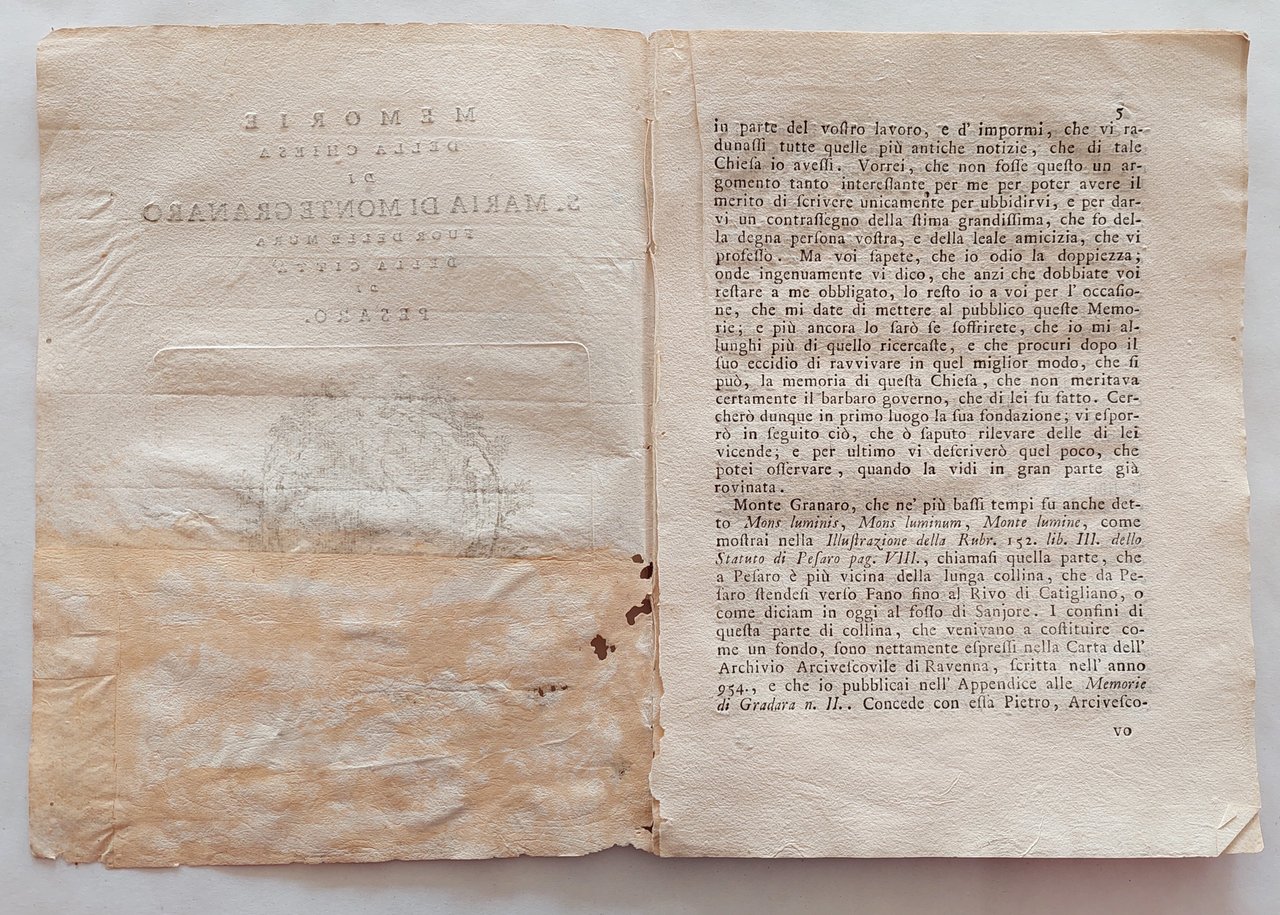 MEMORIE
DELLA CHIESA
DI
S. MARIA DI MONTEGRANARO
FUOR DELLE MURA
DELLA CITTÀ
DI
PESARO.
5
in parte del voſtro lavoro, e d' impormi, che vi ra-
dunaſſi tutte quelle più antiche notizie, che di tale
Chieſa io aveſſi. Vorrei, che non foſſe queſto un ar-
gomento tanto intereſſante per me per poter avere il
merito di ſcrivere unicamente per ubbidirvi, e per dar-
vi un contraſſegno della ſtima grandiſſima, che fo del-
la degna perſona voſtra, e della leale amicizia, che vi
profeſſo. Ma voi ſapete, che io odio la doppiezza;
onde ingenuamente vi dico, che anzi che dobbiate voi
reſtare a me obbligato, lo reſto io a voi per l' occaſio-
ne, che mi date di mettere al pubblico queſte Memo-
rie; e più ancora lo ſarò ſe ſoffrirete, che io mi al-
lunghi più di quello ricercaſte, e che procuri dopo il
ſuo eccidio di ravvivare in quel miglior modo, che ſi
può, la memoria di queſta Chieſa, che non meritava
certamente il barbaro governo, che di lei fu fatto. Cer-
cherò dunque in primo luogo la ſua fondazione; vi eſpor-
rò in ſeguito ciò, che ò ſaputo rilevare delle di lei
vicende; e per ultimo vi deſcriverò quel poco, che
potei oſſervare, quando la vidi in gran parte già
rovinata.
Monte Granaro, che ne' più baſſi tempi fu anche det-
to Mons luminis, Mons luminum, Monte lumine, come
moſtrai nella Illuſtrazione della Rubr. 152. lib. III. dello
Statuto di Peſaro pag. VIII., chiamaſi quella parte, che
a Peſaro è più vicina della lunga collina, che da Pe-
ſaro ſtendeſi verſo Fano fino al Rivo di Catigliano, o
come diciam in oggi al foſſo di Sanjore. I confini di
queſta parte di collina, che venivano a coſtituire co-
me un fondo, ſono nettamente eſpreſſi nella Carta dell'
Archivio Arciveſcovile di Ravenna, ſcritta nell' anno
954., e che io pubblicai nell' Appendice alle Memorie
di Gradara n. II.. Concede con eſſa Pietro, Arciveſco-
vo